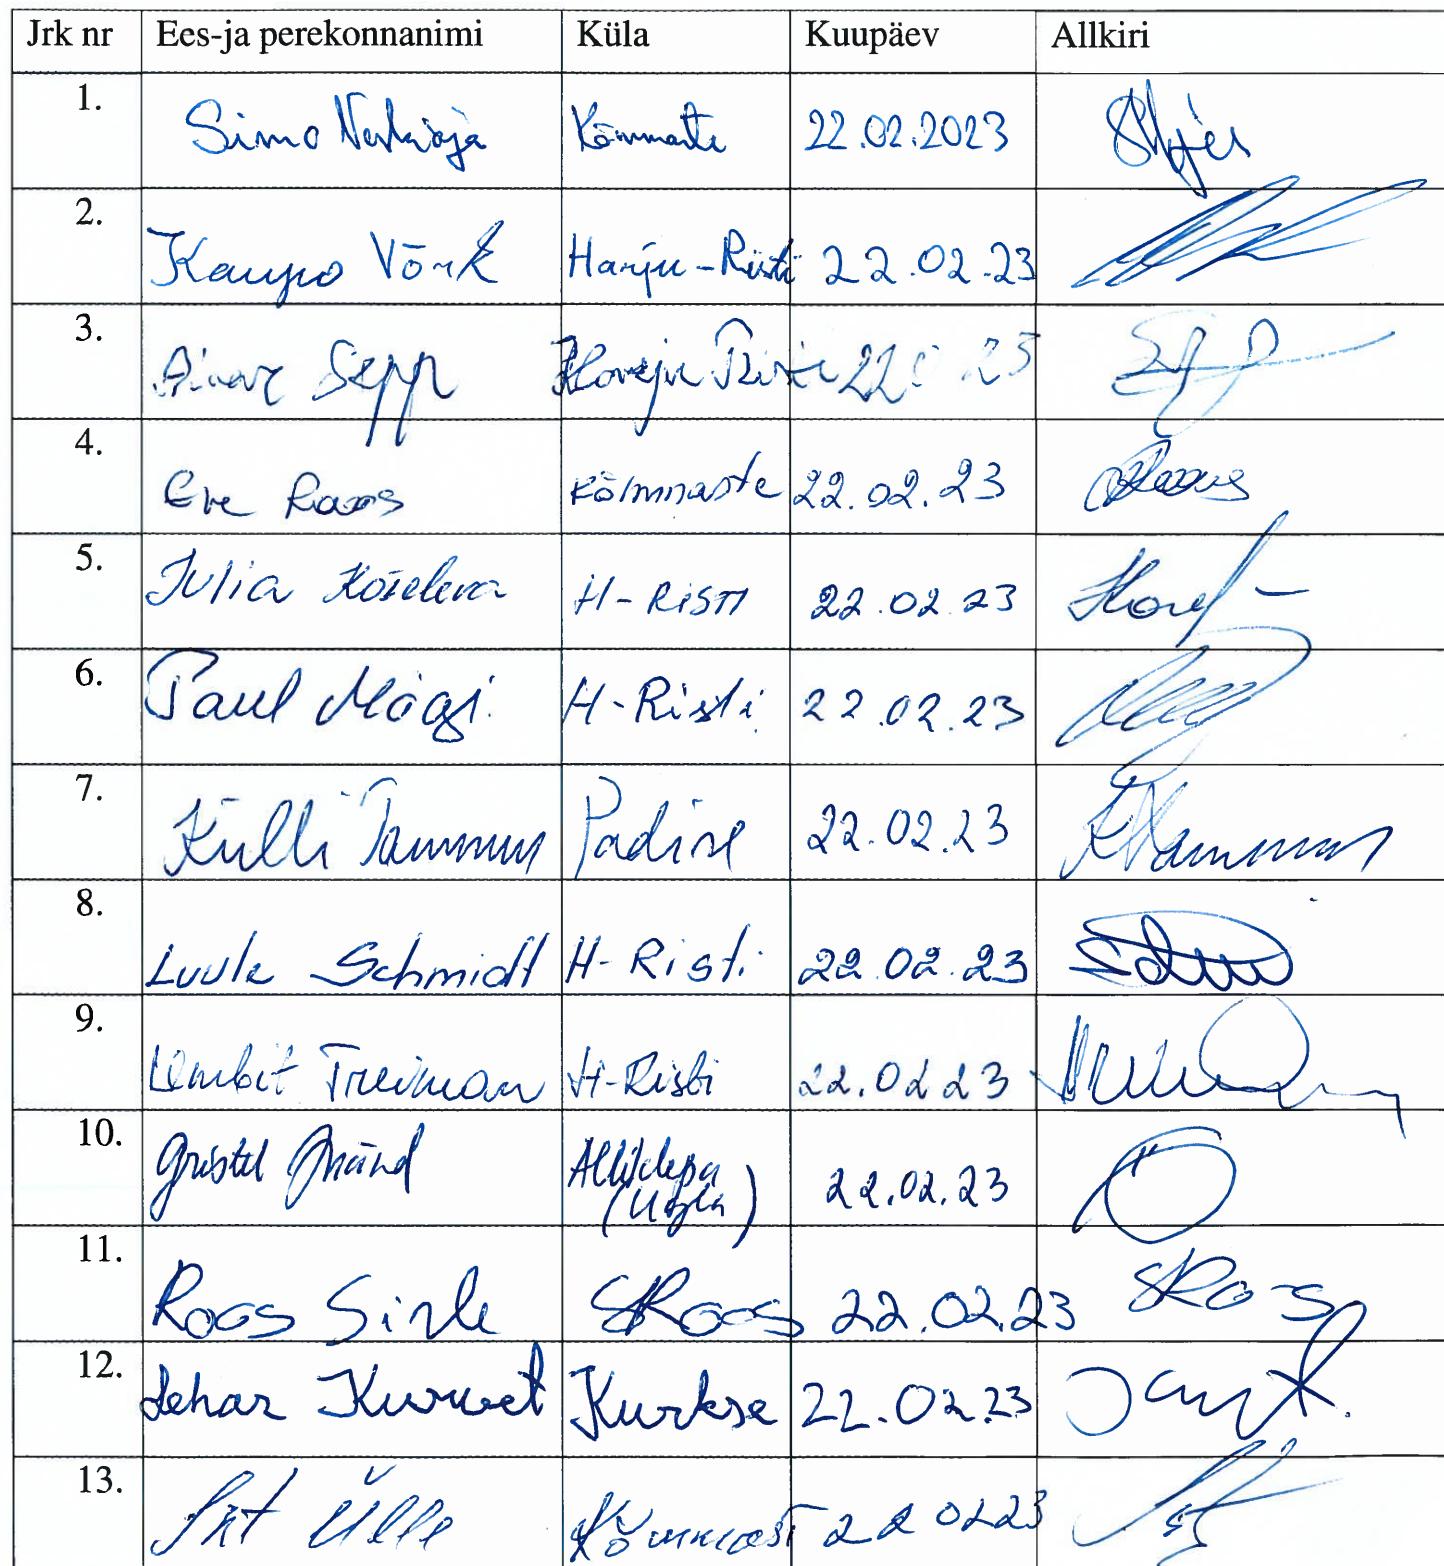 Jrk nr Ees-ja perekonnanimi Küla Kuupäev Allkiri
1. Simo Kõmmaste 22.02.2023
2. Kaupo Võrk Harju-Risti 22.02.23
3. Ainar Sepp Harju Risti 22
4. Eve Roos Kõmmaste 22.02.23
5. Julia Koželeva H-Risti 22.02.23
6. Paul Mägi H-Risti 22.02.23
7. Külli Tammur Padise 22.02.23
8. Luule Schmidt H-Risti 22.02.23
9. Lembit Treiman H-Risti 22.02 23
10. Gristel Mänd Allikalepa 22.02.23
11. Roos Sirle SRoos 22.02.23 SRoos
12. Jehar Kurvet Kurkse 22.02.23
13. Ülle 22 02 23